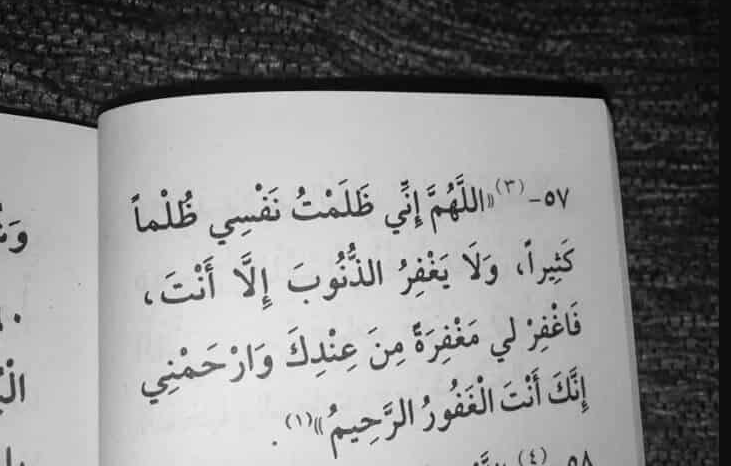 ٥٧-(٣) «اللَّهُمَّ إِنِّي ظَلَمْتُ نَفْسِي ظُلْماً
كَثِيراً، وَلَا يَغْفِرُ الذُّنُوبَ إِلَّا أَنْتَ،
فَاغْفِرْ لي مَغْفِرَةً مِنَ عِنْدِكَ وَارْحَمْنِي
إِنَّكَ أَنْتَ الْغَفُورُ الرَّحِيمُ»(١).
٥٨-(٤)